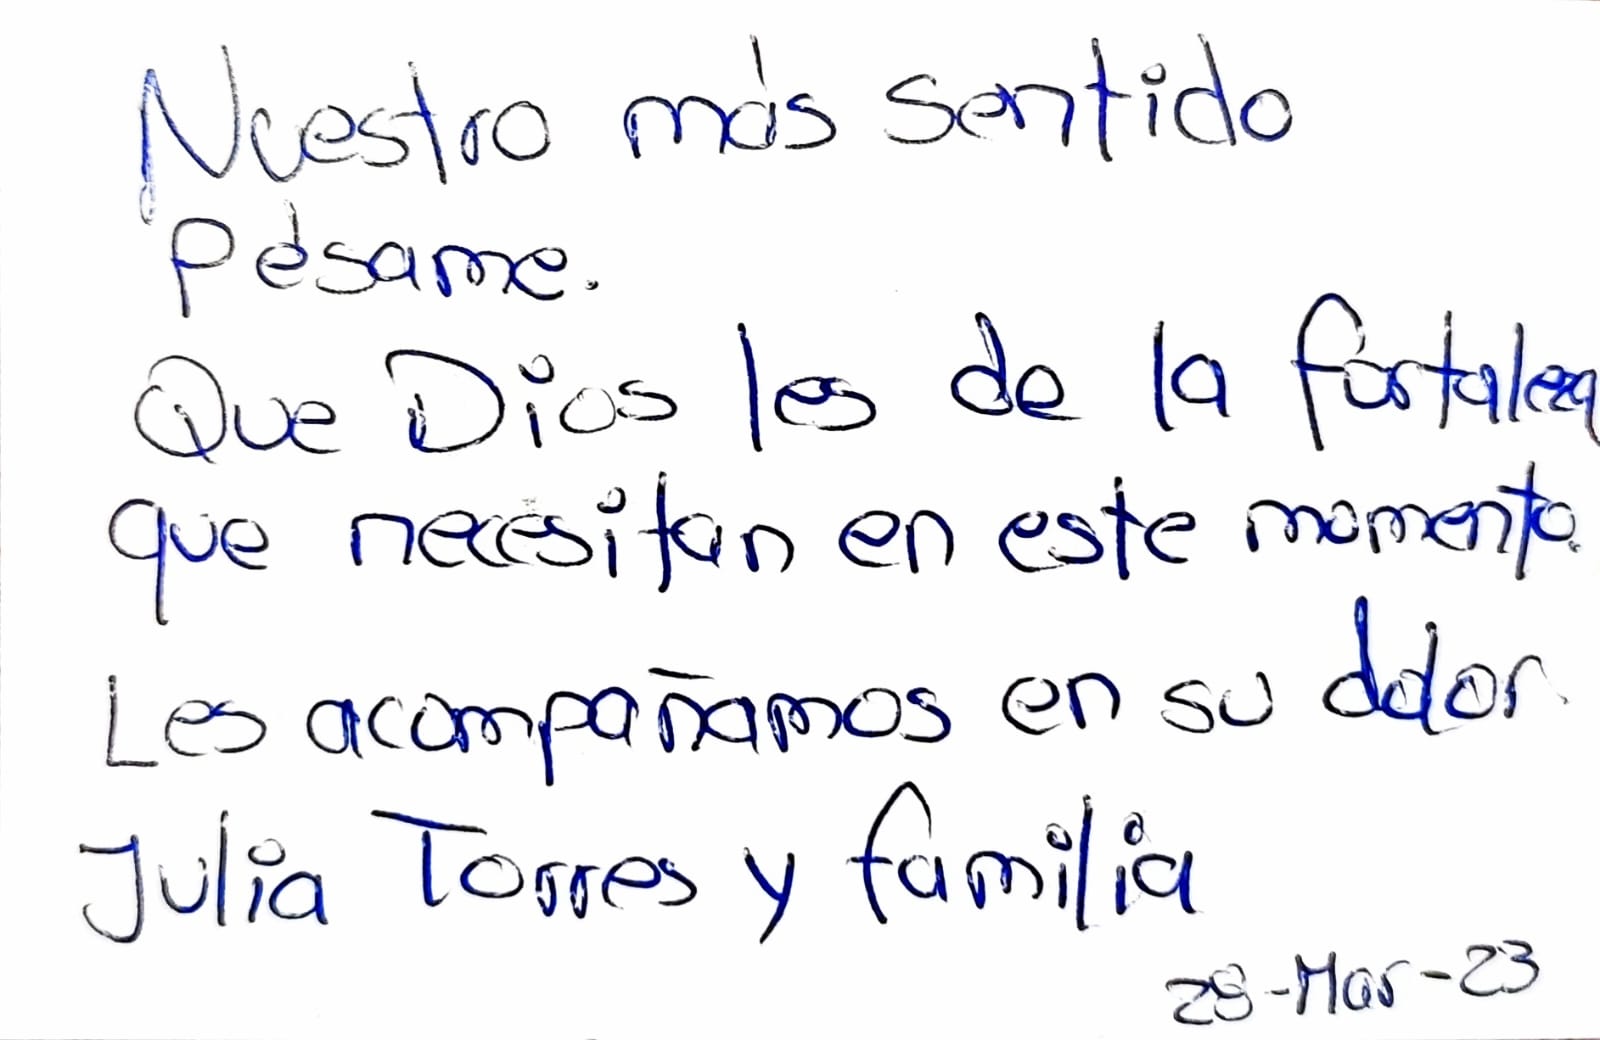 Nuestro más sentido
Pésame.
Que Dios les de la fortaleza
que necesitan en este momento.
Les acompañamos en su dolor
Julia Torres y familia
28-Mar-23